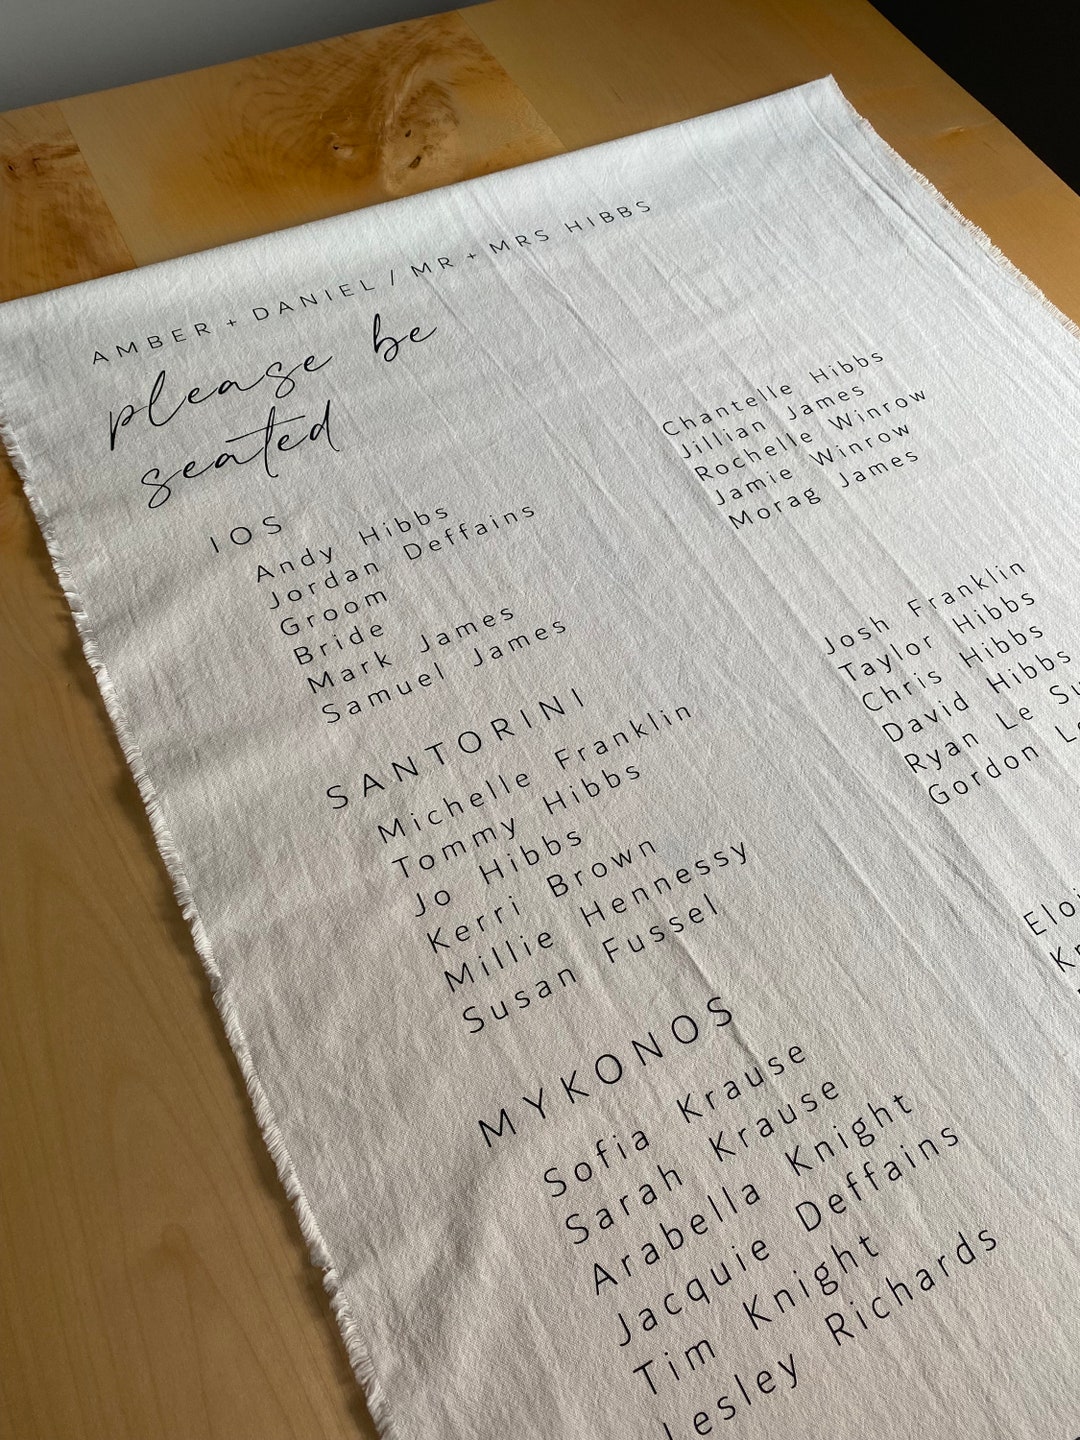 AMBER + DANIEL / MR + MRS HIBBS
please be
seated
IOS
Andy Hibbs
Jordan Deffains
Groom
Bride
Mark James
Samuel James
Chantelle Hibbs
Jillian James
Rochelle Winrow
Jamie Winrow
Morag James
SANTORINI
Michelle Franklin
Tommy Hibbs
Jo Hibbs
Kerri Brown
Millie Hennessy
Susan Fussel
Josh Franklin
Taylor Hibbs
Chris Hibbs
David Hibbs
Ryan Le
Gordon
MYKONOS
Sofia Krause
Sarah Krause
Arabella Knight
Jacquie Deffains
Tim Knight
Lesley Richards